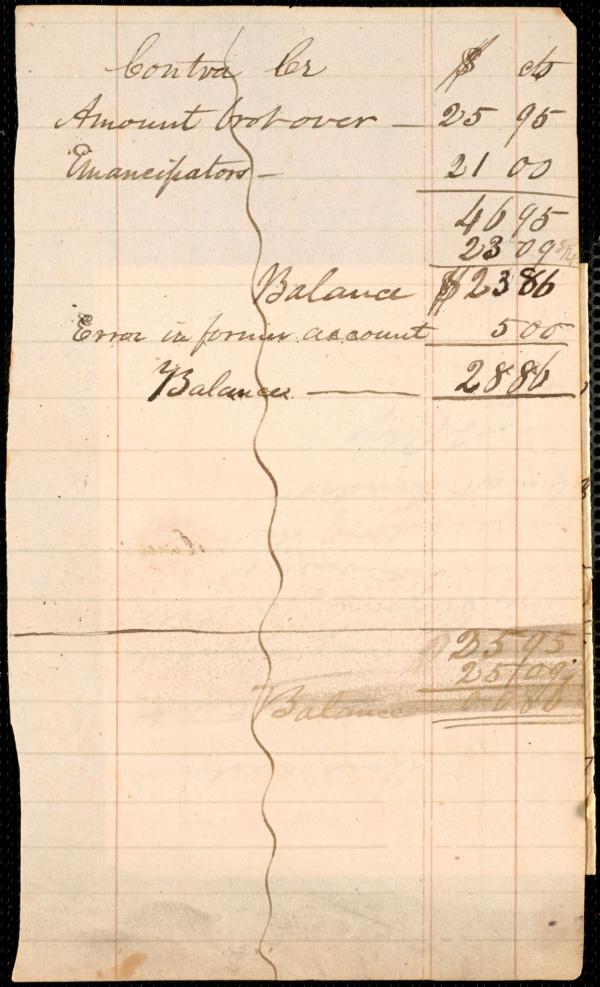 Contra Cr $ cts
Amount brot over — 25 95
Emancipators — 21 00
46 95
23 09
Balance $23 86
Error in former account 5 00
Balances — 28 86
25 95
25 09
Balance 0 086